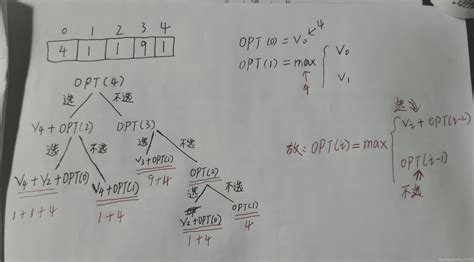 0 1 2 3 4
4 1 1 9 1
OPT(4)
选 不选
V4+OPT(2) OPT(3)
选 不选 选 不选
V4+V2+OPT(0) V4+OPT(1) V3+OPT(1) OPT(2)
1+1+4 1+4 9+4
选 不选
V2+OPT(0) OPT(1)
1+4 4
OPT(0)=V0 4
OPT(1)=max { V0
V1
4
选
故:OPT(i)=max { Vi+OPT(i-2)
OPT(i-1)
不选